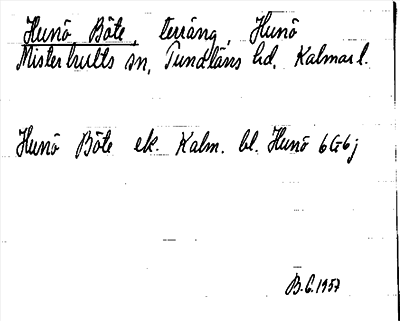 Hunö Böte, terräng, Hunö
Misterhults sn, Tunaläns hd, Kalmar l.
Hunö Böte ek. Kalm. bl. Hunö 6G6j
B.G. 1957